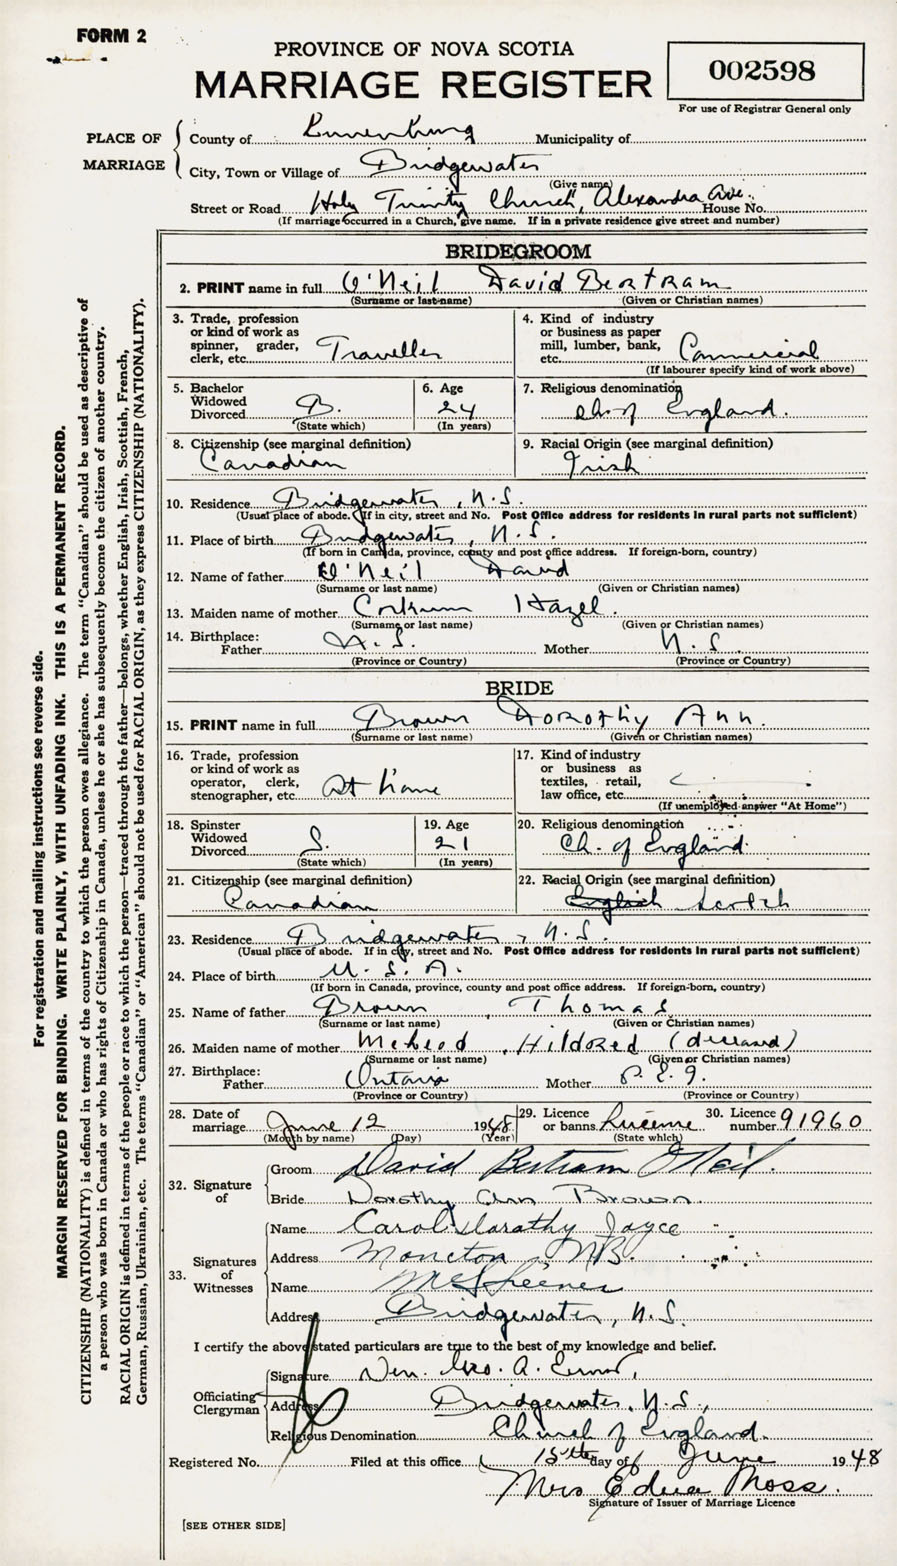 FORM 2
PROVINCE OF NOVA SCOTIA
MARRIAGE REGISTER
002598
For use of Registrar General only
PLACE OF MARRIAGE
County of Lunenburg Municipality of
City, Town or Village of Bridgewater
(Give name)
Street or Road Holy Trinity Church, Alexandra Ave. House No.
(If marriage occurred in a Church, give name. If in a private residence give street and number)
BRIDEGROOM
2. PRINT name in full O'Neil David Bertram
(Surname or last name) (Given or Christian names)
3. Trade, profession or kind of work as spinner, grader, clerk, etc. Traveller
4. Kind of industry or business as paper mill, lumber, bank, etc. Commercial
(If labourer specify kind of work above)
5. Bachelor Widowed Divorced B.
(State which)
6. Age 24
(In years)
7. Religious denomination Ch. of England.
8. Citizenship (see marginal definition)
Canadian
9. Racial Origin (see marginal definition)
Irish
10. Residence Bridgewater, N.S.
(Usual place of abode. If in city, street and No. Post Office address for residents in rural parts not sufficient)
11. Place of birth Bridgewater, N.S.
(If born in Canada, province, county and post office address. If foreign-born, country)
12. Name of father O'Neil David
(Surname or last name) (Given or Christian names)
13. Maiden name of mother Hazel.
(Surname or last name) (Given or Christian names)
14. Birthplace:
Father N.S. Mother N.S.
(Province or Country) (Province or Country)
BRIDE
15. PRINT name in full Brown Dorothy Ann.
(Surname or last name) (Given or Christian names)
16. Trade, profession or kind of work as operator, clerk, stenographer, etc. At home
17. Kind of industry or business as textiles, retail, law office, etc.
(If unemployed answer "At Home")
18. Spinster Widowed Divorced S.
(State which)
19. Age 21
(In years)
20. Religious denomination
Ch. of England.
21. Citizenship (see marginal definition)
Canadian
22. Racial Origin (see marginal definition)
English Scotch
23. Residence Bridgewater, N.S.
(Usual place of abode. If in city, street and No. Post Office address for residents in rural parts not sufficient)
24. Place of birth U.S.A.
(If born in Canada, province, county and post office address. If foreign-born, country)
25. Name of father Brown, Thomas
(Surname or last name) (Given or Christian names)
26. Maiden name of mother McLeod, Hildred (deceased)
(Surname or last name) (Given or Christian names)
27. Birthplace:
Father Ontario Mother P.E.I.
(Province or Country) (Province or Country)
28. Date of marriage June 12 1948
(Month by name) (Day) (Year)
29. Licence or banns License
(State which)
30. Licence number 91960
32. Signature of
Groom David Bertram O'Neil.
Bride Dorothy Ann Brown.
33. Signatures of Witnesses
Name Carol Dorothy Joyce
Address Moncton, N.B.
Name
Address Bridgewater, N.S.
I certify the above stated particulars are true to the best of my knowledge and belief.
Officiating Clergyman
Signature Ven. A.
Address Bridgewater, N.S.,
Religious Denomination Church of England.
Registered No. Filed at this office 15th day of June 1948
Mrs Edna Moss.
Signature of Issuer of Marriage Licence
[SEE OTHER SIDE]
For registration and mailing instructions see reverse side.
MARGIN RESERVED FOR BINDING. WRITE PLAINLY, WITH UNFADING INK. THIS IS A PERMANENT RECORD.
CITIZENSHIP (NATIONALITY) is defined in terms of the country to which the person owes allegiance. The term "Canadian" should be used as descriptive of
a person who was born in Canada or who has rights of Citizenship in Canada, unless he or she has subsequently become the citizen of another country.
RACIAL ORIGIN is defined in terms of the people or race to which the person—traced through the father—belongs, whether English, Irish, Scottish, French,
German, Russian, Ukrainian, etc. The terms "Canadian" or "American" should not be used for RACIAL ORIGIN, as they express CITIZENSHIP (NATIONALITY).